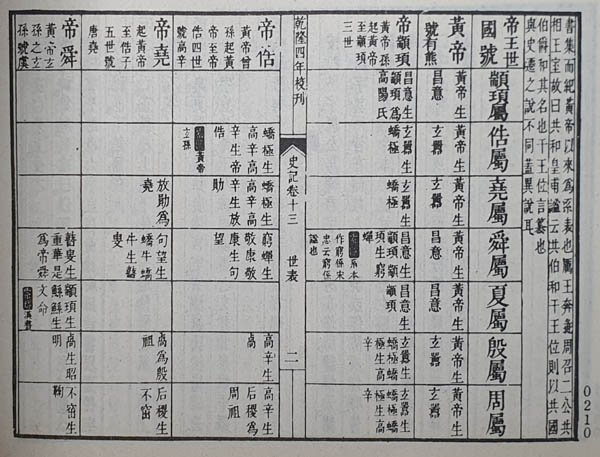 書集而紀黃帝以來為系表也厲王奔彘周召二公共
相王室故曰共和皇甫謐云共伯和干王位則以共國
伯爵和其名也干王位言篡也
與史遷之說不同蓋異說耳
帝王世
國號
顓頊屬
俈屬
堯屬
舜屬
夏屬
殷屬
周屬
黃帝
號有熊
黃帝生
昌意
黃帝生
玄囂
黃帝生
玄囂
黃帝生
昌意
黃帝生
昌意
黃帝生
玄囂
黃帝生
玄囂
帝顓頊
黃帝孫
起黃帝
至顓頊
三世
昌意生
顓頊為
高陽氏
玄囂生
蟜極
玄囂生
蟜極
昌意生
顓頊顓
頊生窮
蟬
索隱系本
作窮係宋
忠云窮係
謚也
昌意生
顓頊
玄囂生
蟜極蟜
極生高
辛
玄囂生
蟜極蟜
極生高
辛
乾隆四年校刊
史記卷十三
世表
二
帝俈
黃帝曾
孫起黃
帝至帝
俈四世
號高辛
蟜極生
高辛高
辛生帝
俈
索隱黃帝
玄孫
蟜極生
高辛高
辛生放
勛
窮蟬生
敬康敬
康生句
望
高辛生
卨
高辛生
后稷為
周祖
帝堯
起黃帝
至俈子
五世號
唐堯
放勛為
堯
句望生
蟜牛蟜
牛生瞽
叟
卨為殷
祖
后稷生
不窋
帝舜
黃帝玄
孫之玄
孫號虞
瞽叟生
重華是
為帝舜
顓頊生
鯀鯀生
文命
索隱漢書
卨生昭
明
不窋生
鞠
0210